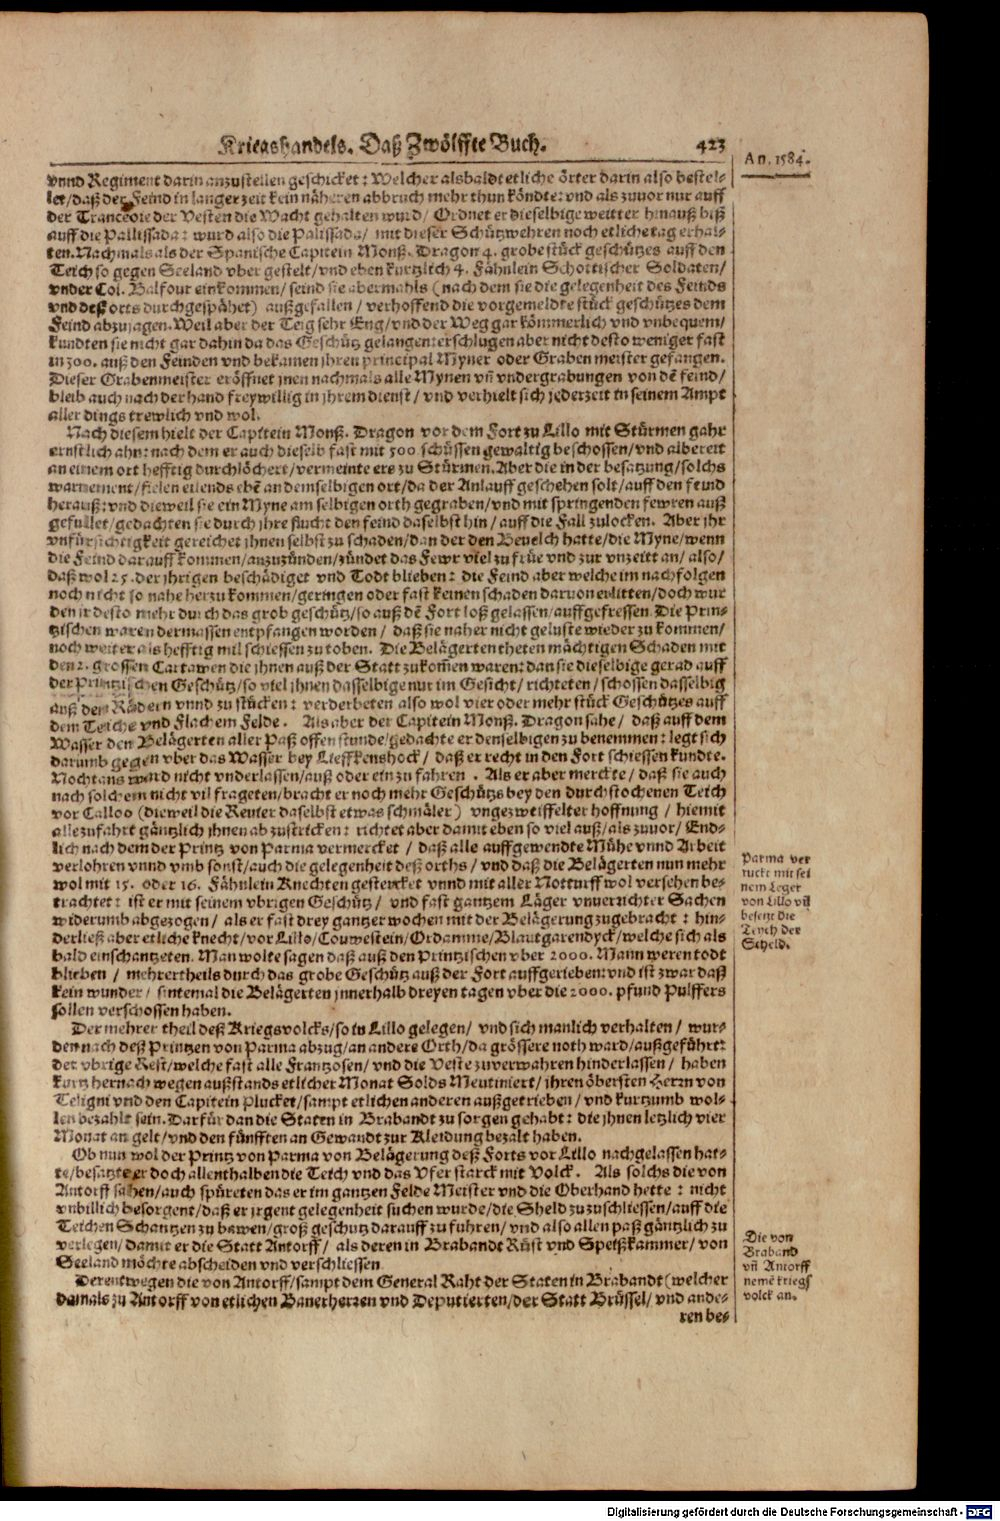 Kriegshandels. Daß Zwölffte Buch. 423
An. 1584.
vnnd Regiment darin anzustellen geschicket: Welcher alsbaldt etliche örter darin also bestel-
let/daß der Feind in langer zeit kein näheren abbruch mehr thun köndte: vnd als zuuor nur auff
der Tranceoie der Vesten die Wacht gehalten wurd/ Ordnet er dieselbige weitter hinauß biß
auff die Pallissada: wurd also die Palissada/ mit dieser Schützwehren noch etliche tag erhal-
ten. Nachmals als der Spanische Capitein Monß. Dragon 4. grobe stück geschützes auff den
Teich so gegen Seeland vber gestelt/vnd eben kurtzlich 4. Fähnlein Schottischer Soldaten/
vnder Col. Balfour einkommen/ seind sie abermahls (nach dem sie die gelegenheit des Feinds
vnd deß orts durchgespähet) außgefallen/ verhoffend die vorgemeldte stück geschützes dem
Feind abzujagen. Weil aber der Teig sehr Eng/vnd der Weg gar kömmerlich vnd vnbequem/
kundten sie nicht gar dahin da das Geschütz gelangen: erschlugen aber nicht desto weniger fast
in 300. auß den Feinden vnd bekamen jhren principal Myner oder Graben meister gefangen.
Dieser Grabenmeister eröffnet jnen nachmals alle Mynen vñ vndergrabungen von dẽ feind/
bleib auch nach der hand freywillig in jhrem dienst/ vnd verhielt sich jederzeit in seinem Ampt
aller dings trewlich vnd wol.
Nach diesem hielt der Capitein Monß. Dragon vor dem Fort zu Lillo mit Stürmen gahr
ernstlich ahn: nach dem er auch dieselb fast mit 500 schüssen gewaltig beschossen/vnd albereit
an einem ort hefftig durchlöchert/vermeinte ers zu Stürmen. Aber die in der besatzung/solchs
warnement/fielen eilends ebẽ an demselbigen ort/da der Anlauff geschehen solt/auff den feind
herauß: vnd dieweil sie ein Myne am selbigen orth gegraben/vnd mit springenden fewren auß
gefullet/gedachten sie durch jhre flucht den feind daselbst hin/ auff die Fall zulocken. Aber jhr
vnfürsichtigkeit gereichet jhnen selbst zu schaden/dan der den Beuelch hatte/die Myne/wenn
die Feind darauff kommen/anzuzünden/zündet das Fewr viel zu früe vnd zur vnzeitt an/ also/
daß wol 25. der jhrigen beschädiget vnd Todt blieben: die Feind aber welche im nachfolgen
noch nicht so nahe herzu kommen/geringen oder fast keinen schaden daruon erlitten/doch wur
den jr desto mehr durch das grob geschütz/so auß dẽ Fort loß gelassen/auffgefressen. Die Prin-
tzischen waren dermassen entpfangen worden/ daß sie naher nicht geluste wieder zu kommen/
noch weiter als hefftig mil schiessen zu toben. Die Belägerten theten mächtigen Schaden mit
den 2. grossen Cartawen die jhnen auß der Statt zukom̃en waren: dan sie dieselbige gerad auff
der Printzischen Geschütz/so viel jhnen dasselbige nur im Gesicht/ richteten/ schossen dasselbig
auß den Rädern vnnd zu stücken: verderbeten also wol vier oder mehr stück Geschützes auff
dem Teiche vnd Flachem Felde. Als aber der Capitein Monß. Dragon sahe/ daß auff dem
Wasser den Belägerten aller Paß offen stunde/gedachte er denselbigen zu benemmen: legt sich
darumb gegen vber das Wasser bey Lieffkenshock/ daß er recht in den Fort schiessen kundte.
Nochtans ward nicht vnderlassen/auß oder ein zu fahren. Als er aber merckte/ daß sie auch
nach solchem nicht vil frageten/bracht er noch mehr Geschützs bey den durchstochenen Teich
vor Calloo (dieweil die Reuier daselbst etwas schmäler) vngezweiffelter hoffnung/ hiemit
alle zufahrt gäntzlich jhnen abzustricken: richtet aber damit eben so viel auß/als zuuor/ End-
lich nach dem der Printz von Parma vermercket/ daß alle auffgewendte Mühe vnnd Arbeit
verlohren vnnd vmb sonst/auch die gelegenheit deß orths/ vnd daß die Belägerten nun mehr
wol mit 15. oder 16. Fähnlein Knechten gestercket vnnd mit aller Notturff wol versehen be-
trachtet: ist er mit seinem vbrigen Geschütz/ vnd fast gantzem Läger vnuerichter Sachen
widerumb abgezogen/ als er fast drey gantzer wochen mit der Belägerung zugebracht: hin-
derließ aber etliche knecht/vor Lillo/Touwestein/Ordamme/Blautgarendyck/welche sich als
bald einschantzeten. Man wolte sagen daß auß den Printzischen vber 2000. Mann weren todt
blieben/ mehrertheils durch das grobe Geschütz auß der Fort auffgerieben: vnd ist zwar daß
kein wunder/ sintemal die Belägerten jnnerhalb dreyen tagen vber die 2000. pfund Pulffers
sollen verschossen haben.
Der mehrer theil deß Kriegsvolcks/so in Lillo gelegen/ vnd sich manlich verhalten/ wur-
den nach deß Printzen von Parma abzug/an andere Orth/da grössere noth ward/außgeführt:
der vbrige Rest/welche fast alle Frantzosen/ vnd die Veste zuverwahren hinderlassen/ haben
kurtz hernach wegen außstands etlicher Monat Solds Meutiniert/ jhren öbersten Herrn von
Teligni vnd den Capitein Plucket/sampt etlichen anderen außgetrieben/ vnd kurtzumb wol-
len bezahlt sein. Darfür dan die Staten in Brabandt zu sorgen gehabt: die jhnen letzlich vier
Monat an gelt/vnd den fünfften an Gewandt zur Kleidung bezalt haben.
Ob nun wol der Printz von Parma von Belägerung deß Forts vor Lillo nachgelassen hat-
te/besatzte er doch allenthalben die Teich vnd das Vfer starck mit Volck. Als solchs die von
Antorff sahen/auch spüreten das er im gantzen Felde Meister vnd die Oberhand hette: nicht
vnbillich besorgent/daß er jrgent gelegenheit suchen wurde/die Sheld zuzuschliessen/auff die
Teichen Schantzen zu bawen/groß geschutz darauff zu fuhren/vnd also allen paß gäntzlich zu
verlegen/damit er die Statt Antorff/ als deren in Brabandt Rüst vnd Speißkammer/von
Seeland möchte abscheiden vnd verschliessen
Derentwegen die von Antorff/sampt dem General Raht der Staten in Brabandt (welcher
damals zu Antorff von etlichen Banerherren vnd Deputierten/der Statt Brüssel/ vnd ande-
ren be-
Parma ver
ruckt mit sei
nem Leger
von Lillo vñ
besetzt die
Teych der
Scheld.
Die von
Braband
vñ Antorff
nemẽ kriegs
volck an.
Digitalisierung gefördert durch die Deutsche Forschungsgemeinschaft - DFG